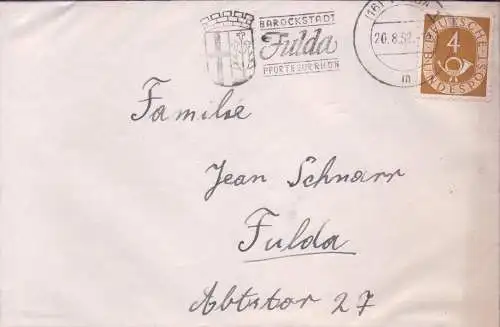 BAROCKSTADT
Fulda
PFORTE ZUR RHÖN
20.8.52.
m
DEUTSCHE BUNDESPOST
4
Familie
Jean Schnarr
Fulda
Abtstor 27